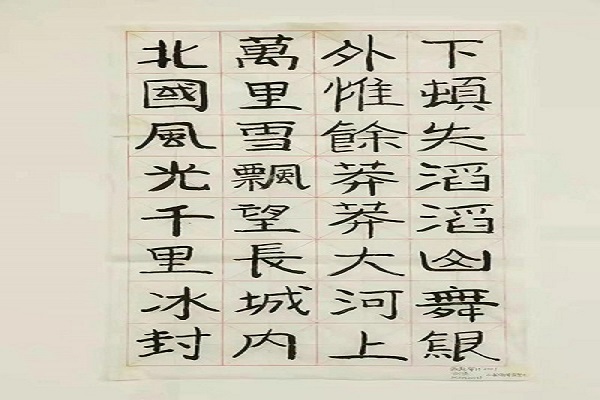 北國風光千里冰封
萬里雪飄望長城内
外惟餘莽莽大河上
下頓失滔滔山舞銀